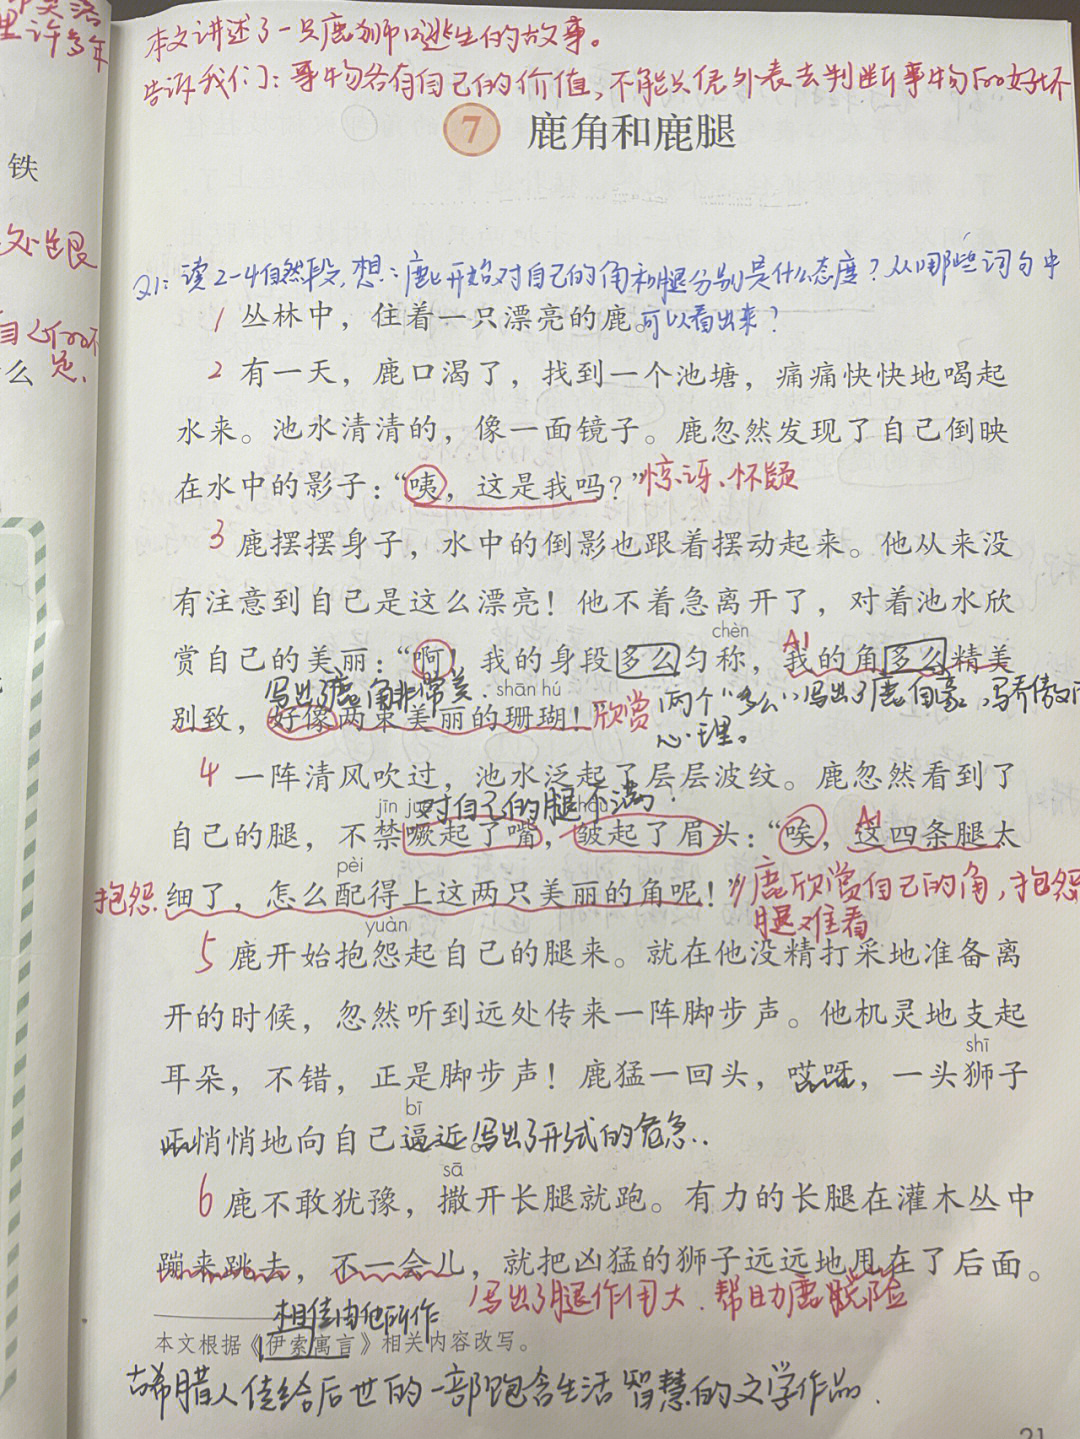 本文讲述了一只鹿狮口逃生的故事。
告诉我们：事物各有自己的价值，不能只凭外表去判断事物的好坏
里许多年
7 鹿角和鹿腿
铁
Q1：读2-4自然段，想：鹿开始对自己的角和腿分别是什么态度？从哪些词句中
可以看出来？
1 丛林中，住着一只漂亮的鹿。
么
2 有一天，鹿口渴了，找到一个池塘，痛痛快快地喝起
水来。池水清清的，像一面镜子。鹿忽然发现了自己倒映
在水中的影子：“咦，这是我吗？”惊讶、怀疑
3 鹿摆摆身子，水中的倒影也跟着摆动起来。他从来没
有注意到自己是这么漂亮！他不着急离开了，对着池水欣
chèn A1
赏自己的美丽：“啊！我的身段多么匀称，我的角多么精美
写出了鹿角非常美． shān hú
别致，好像两束美丽的珊瑚！”欣赏 两个“多么”写出了鹿自豪、骄傲的
心理。
4 一阵清风吹过，池水泛起了层层波纹。鹿忽然看到了
jīn juē 对自己的腿不满
A1
自己的腿，不禁噘起了嘴，皱起了眉头：“唉，这四条腿太
pèi
抱怨 细了，怎么配得上这两只美丽的角呢！” 鹿欣赏自己的角，抱怨
腿难看
yuàn
5 鹿开始抱怨起自己的腿来。就在他没精打采地准备离
开的时候，忽然听到远处传来一阵脚步声。他机灵地支起
shī
耳朵，不错，正是脚步声！鹿猛一回头，哎呀，一头狮子
bī
正悄悄地向自己逼近。写出了形式的危急．．
sā
6 鹿不敢犹豫，撒开长腿就跑。有力的长腿在灌木丛中
蹦来跳去，不一会儿，就把凶猛的狮子远远地甩在了后面。
写出了腿作用大．帮助鹿脱险
相传由他所作
本文根据《伊索寓言》相关内容改写。
古希腊人传给后世的一部饱含生活智慧的文学作品．
21